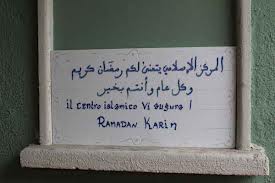 المركز الإسلامي يتمنى لكم رمضان كريم
وكل عام وأنتم بخير
il centro islamico Vi augura !
RAMADAN KARIM